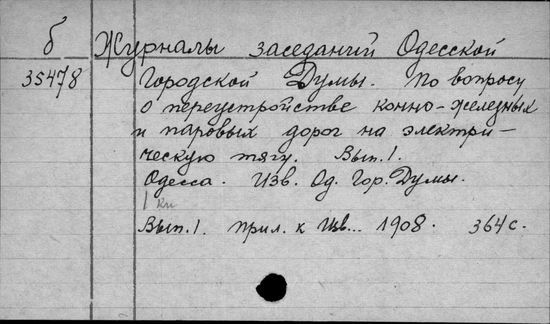 б Журналы заседаний Одесской
35478 Городской Думы. По вопросу
о переустройстве конно-железных
и паровых дорог на электри-
ческую тягу. Вып. 1.
Одесса. Изв. Од. Гор. Думы.
1 кн
Вып. 1. прил. к Изв... 1908. 364 с.